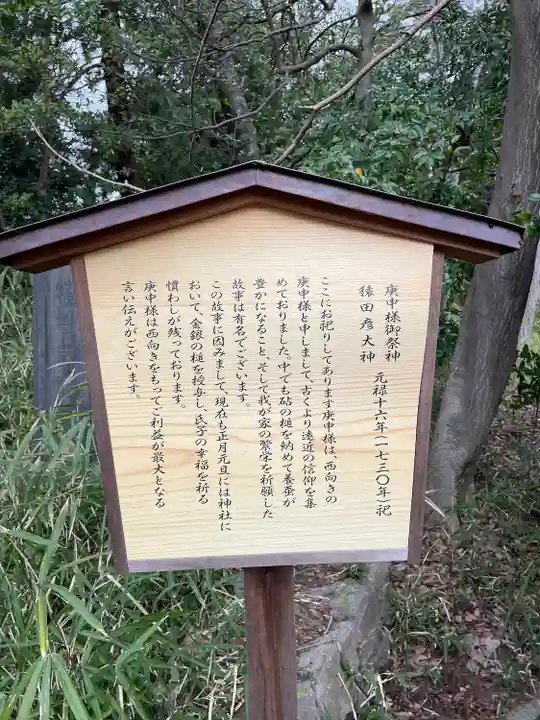 庚申様御祭神
猿田彦大神　元禄十六年(一七三〇年)祀
ここにお祀りしてあります庚申様は、西向きの
庚申様と申しまして、古くより遠近の信仰を集
めておりました。中でも砧の槌を納めて養蚕が
豊かになること、そして我が家の繁栄を祈願した
故事は有名でございます。
この故事に因みまして、現在も正月元旦には神社に
おいて、金銀の槌を授与し、氏子の幸福を祈る
慣わしが残っております。
庚申様は西向きをもってご利益が最大となる
言い伝えがございます。